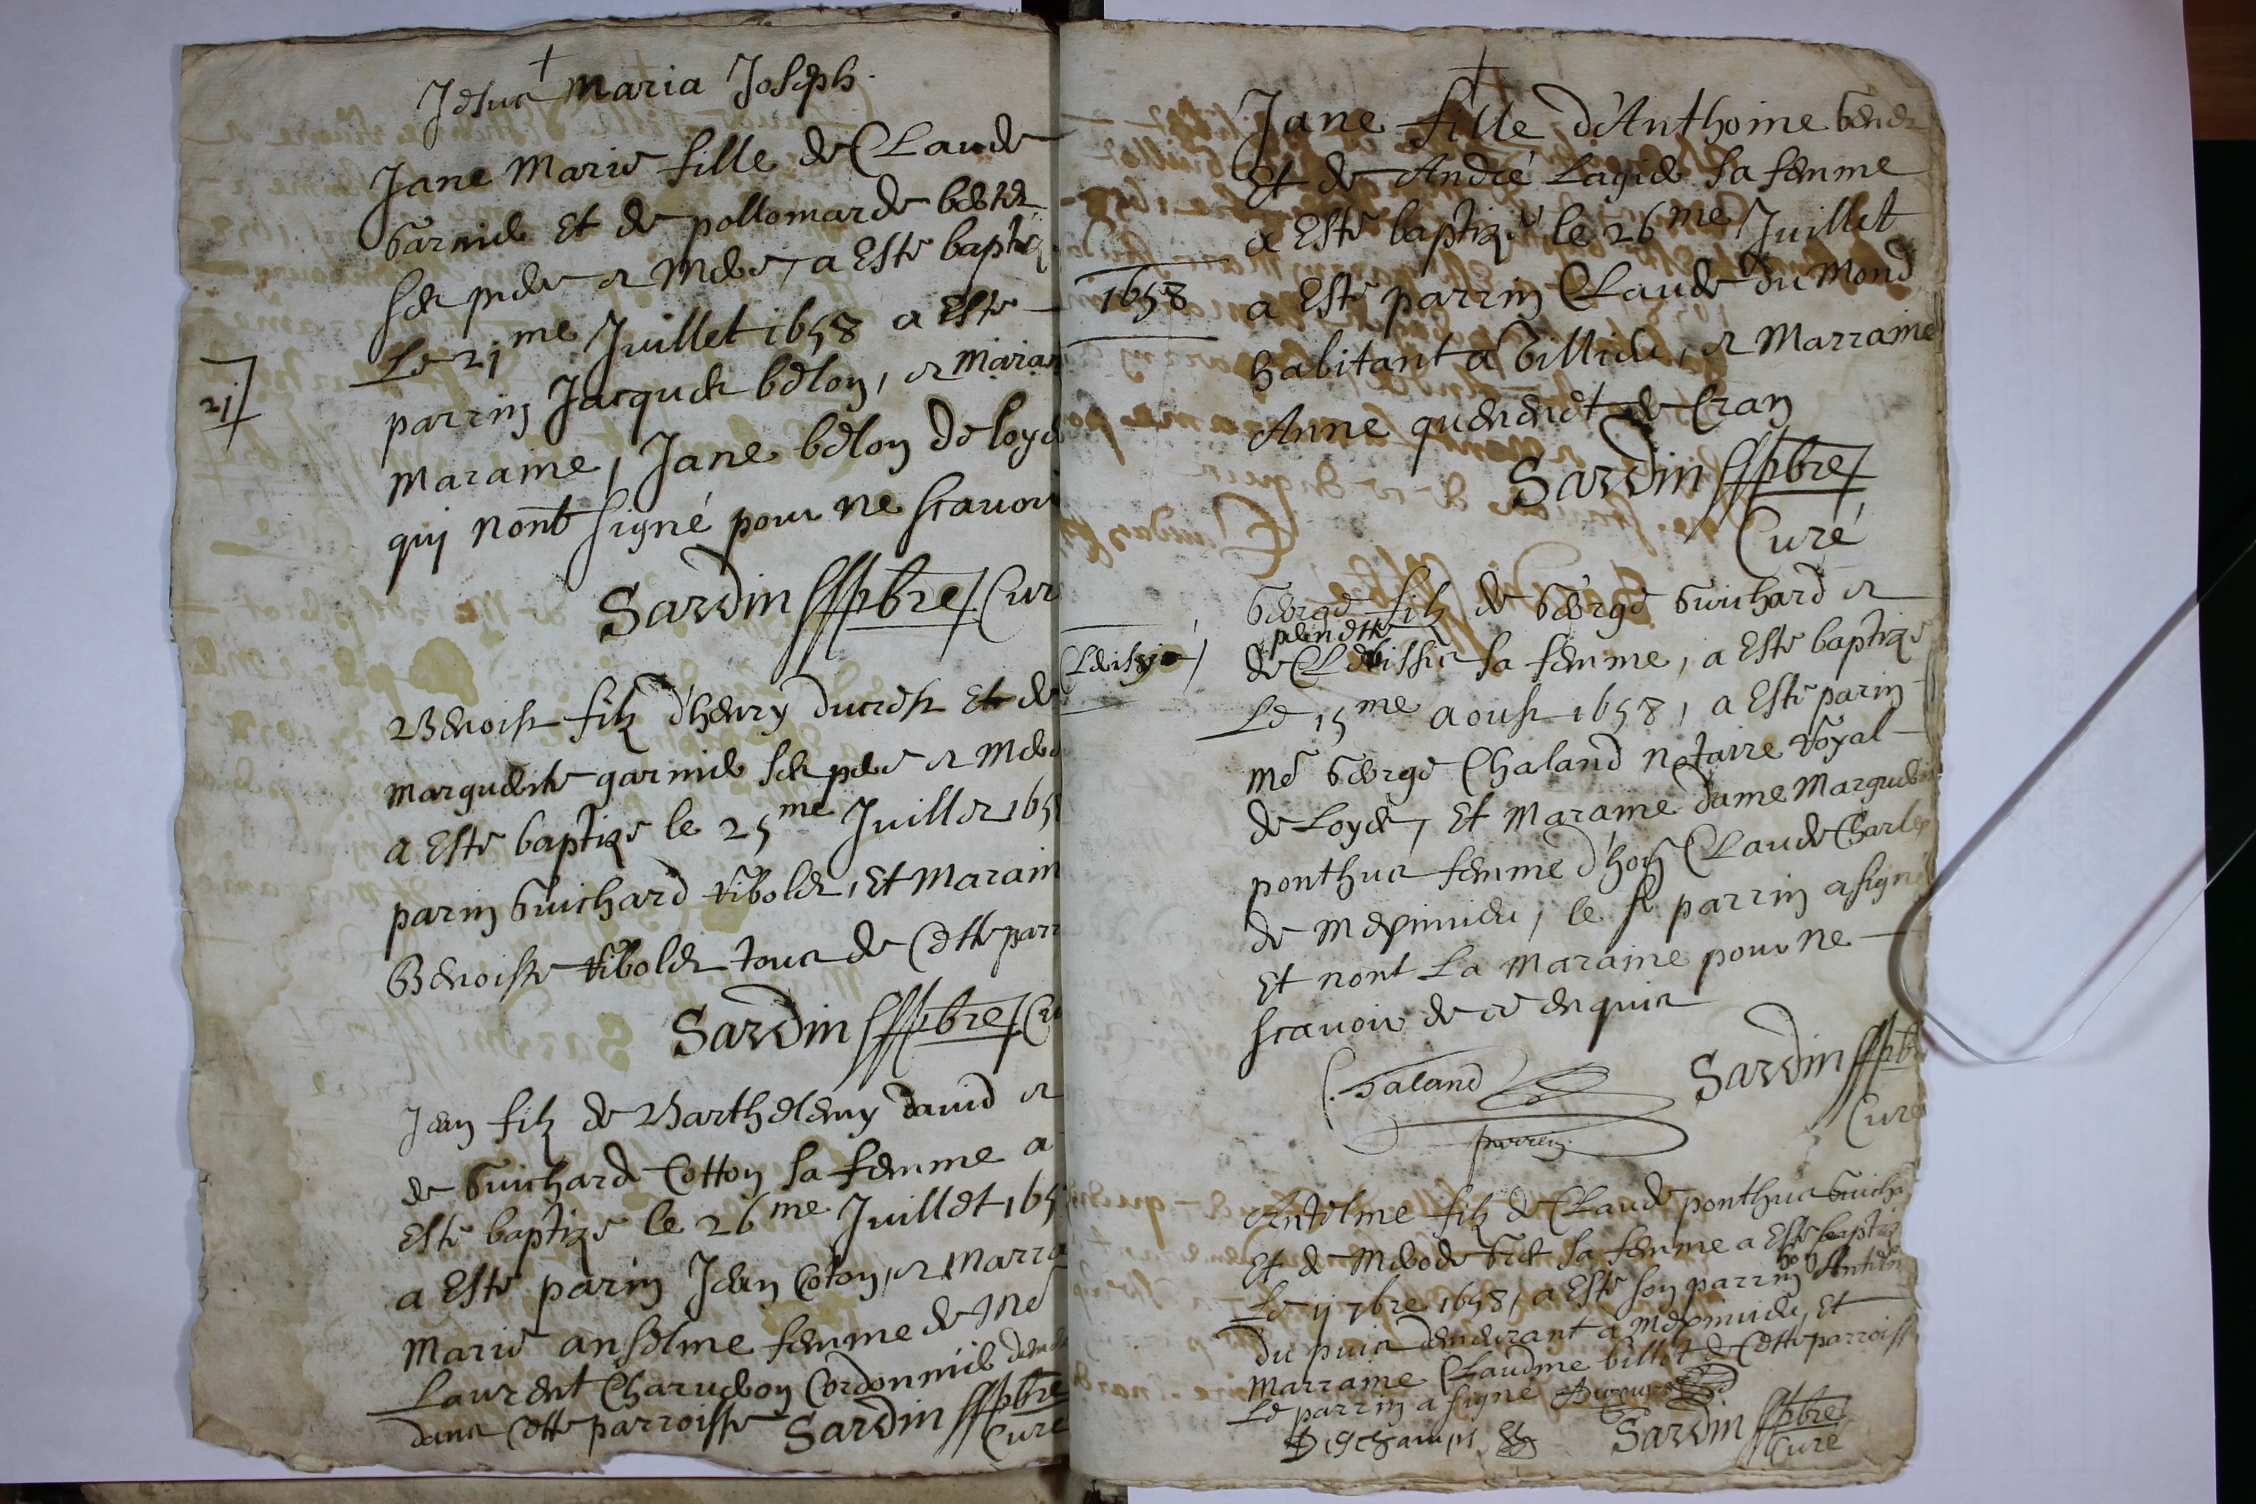 Jesus Maria Joseph
Jane Marie fille de Claude
Garnier et de pollomarde
ses pere et Mere, a Esté baptizé
Le 21me Juillet 1658 a Esté
21
parrin Jacques belon, et
maraine, Jane belon de loyes
qui nont signé pour ne scavoir
Sardin pbre Cur
Benoist filz d'henry ducrest Et de
marguerite garnier ses pere et Mere
a Esté baptizé le 25me Juillet 165
parin Guichard tibolet, Et Marain
Benoiste tibolet tous de Cette parr
Sardin pbre Cu
Jean filz de Barthelemy david et
de Guicharde Cotton sa femme a
Esté baptizé le 26me Juillet 165
a Esté parin Jean Coton, et Marra
Marie anselme femme de Me
Laurent Charueyron Cordonnier
dans Cette parroisse Sardin pbre
Curé
Jane fille d'Anthoine
Et de André Lagier sa femme
a Esté baptizé le 26me Juillet
1658
a Esté parrin Claude du Mond
habitant a Villieu, et Marraine
Anne de Cran
Sardin pbre
Curé
George filz de George Guichard et
penette
de sa femme, a Esté baptizé
Le 15me aoust 1658, a Esté parin
Me George Chaland Notaire Royal
de Loyes, Et Maraine dame Margueri
ponthus femme d'hon Claude Charle
de Meximieu, le sr parrin a signé
Et nont La Maraine pour ne
scavoir de ce enquis
Chaland Sardin pb
Curé
parrein
Antelme filz de Claude ponthus
Et de sa femme a Esté baptiz
Le 11 7bre 1658, a Esté son parrin hon
du puis demeurant a Meximieu, Et
Marraine Claudine billet de Cette parroisse
Le parrin a signé
Deschamps Sardin pbre
Curé